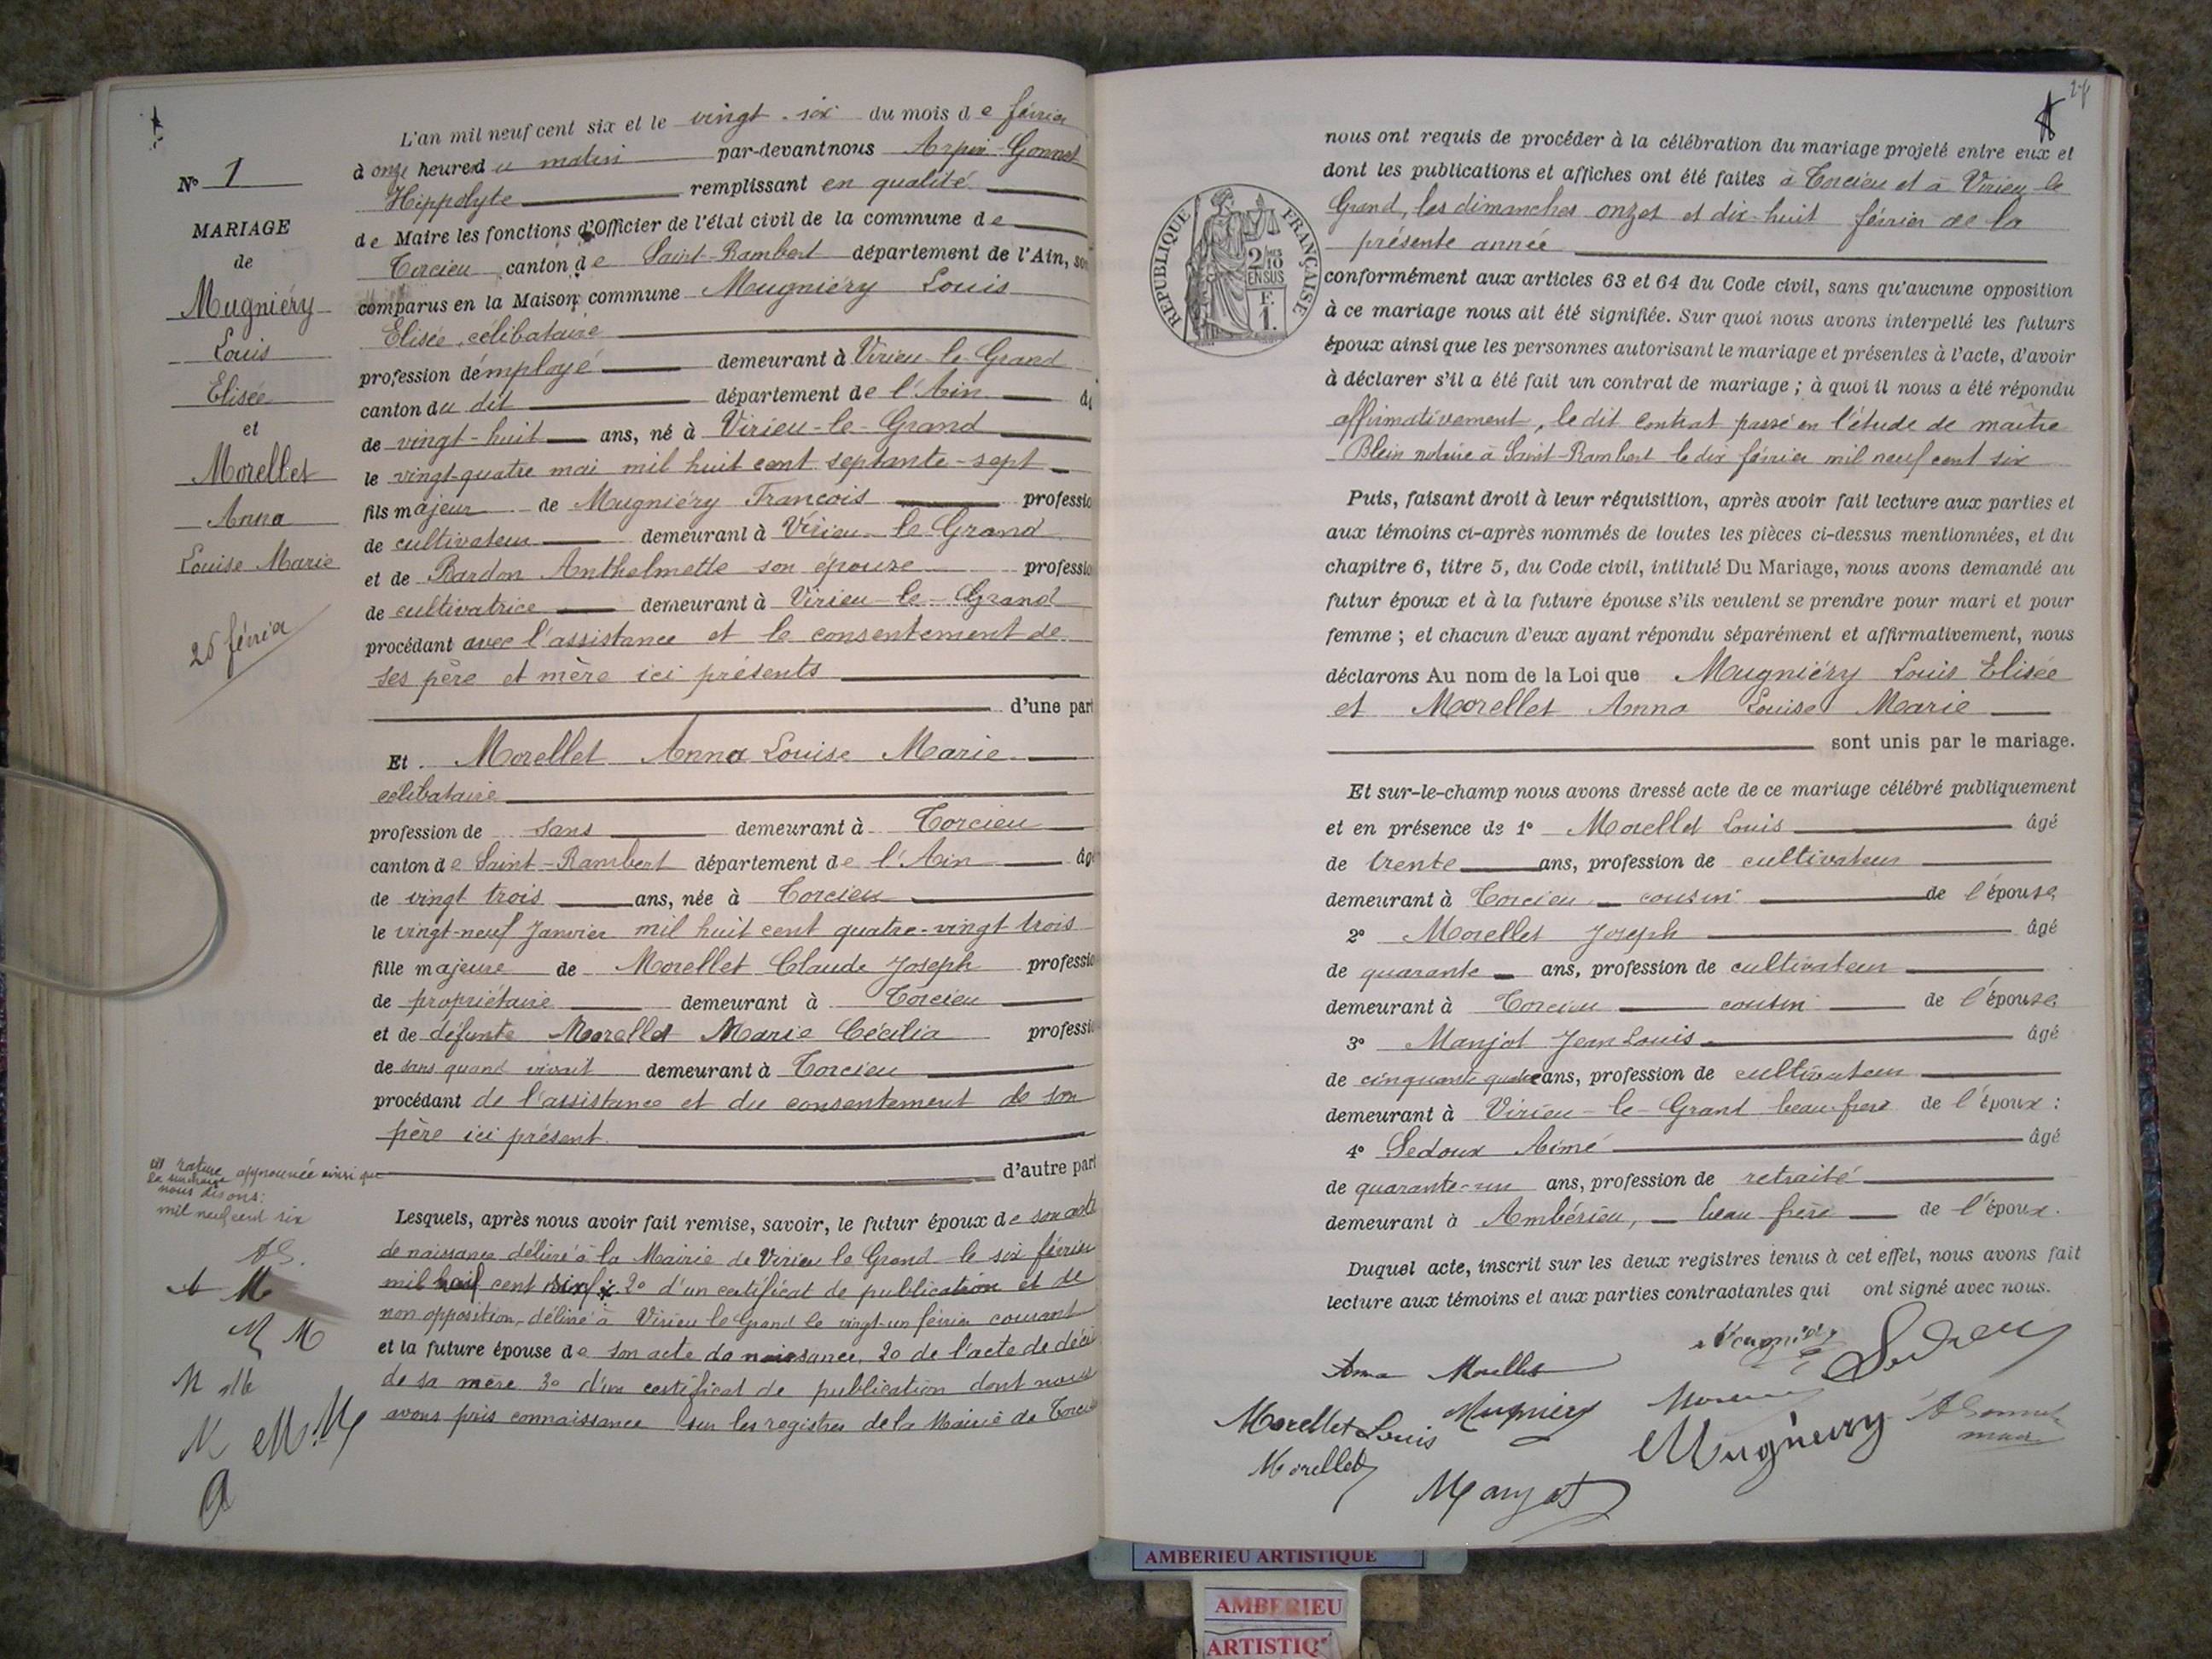 N° 1
MARIAGE
de
Mugniéry
Louis
Elisée
et
Morellet
Anna
Louise Marie
26 février
L'an mil neuf cent six et le vingt-six du mois de février
à onze heures du matin par-devant nous Arpin-Gonnet
Hippolyte remplissant en qualité
de Maire les fonctions d'Officier de l'état civil de la commune de
Torcieu canton de Saint-Rambert département de l'Ain, son
comparus en la Maison commune Mugniéry Louis
Elisée, célibataire
profession d'employé demeurant à Virieu le Grand
canton du dit département de l'Ain
de vingt-huit ans, né à Virieu-le-Grand
le vingt-quatre mai mil huit cent septante-sept
fils majeur de Mugniéry François professio
de cultivateur demeurant à Virieu le Grand
et de Bardon Anthelmette son épouse professio
de cultivatrice demeurant à Virieu-le-Grand
procédant avec l'assistance et le consentement de
ses père et mère ici présents
d'une part
Et Morellet Anna Louise Marie
célibataire
profession de sans demeurant à Torcieu
canton de Saint-Rambert département de l'Ain âgé
de vingt trois ans, née à Torcieu
le vingt-neuf Janvier mil huit cent quatre-vingt trois
fille majeure de Morellet Claude Joseph professio
de propriétaire demeurant à Torcieu
et de défunte Morellet Marie Cécilia professio
de sans quand vivait demeurant à Torcieu
procédant de l'assistance et du consentement de son
père ici présent.
d'autre part
rature approuvée ainsi que
la surcharge
nous disons:
mil neuf cent six
AG.
A M
M M
M M
A
Lesquels, après nous avoir fait remise, savoir, le futur époux de son acte
de naissance délivré à la Mairie de Virieu le Grand le six février
mil cent six 2° d'un certificat de publication et de
non opposition, délivré à Virieu le Grand le vingt-un février courant
et la future épouse de son acte de naissance, 2° de l'acte de décè
de sa mère 3° d'un certificat de publication dont nous
avons pris connaissance sur les registres de la Mairie de Torcieu
nous ont requis de procéder à la célébration du mariage projeté entre eux et
dont les publications et affiches ont été faites à Torcieu et à Virieu le
Grand, les dimanches onzes et dix-huit février de la
présente année
RÉPUBLIQUE FRANÇAISE
2/10
EN SUS
F.
1.
conformément aux articles 63 et 64 du Code civil, sans qu'aucune opposition
à ce mariage nous ait été signifiée. Sur quoi nous avons interpellé les futurs
époux ainsi que les personnes autorisant le mariage et présentes à l'acte, d'avoir
à déclarer s'il a été fait un contrat de mariage ; à quoi il nous a été répondu
affirmativement, le dit contrat passé en l'étude de maître
Blein notaire à Saint-Rambert le dix février mil neuf cent six
Puis, faisant droit à leur réquisition, après avoir fait lecture aux parties et
aux témoins ci-après nommés de toutes les pièces ci-dessus mentionnées, et du
chapitre 6, titre 5, du Code civil, intitulé Du Mariage, nous avons demandé au
futur époux et à la future épouse s'ils veulent se prendre pour mari et pour
femme ; et chacun d'eux ayant répondu séparément et affirmativement, nous
déclarons Au nom de la Loi que Mugniéry Louis Elisée
et Morellet Anna Louise Marie
sont unis par le mariage.
Et sur-le-champ nous avons dressé acte de ce mariage célébré publiquement
et en présence de 1° Morellet Louis âgé
de trente ans, profession de cultivateur
demeurant à Torcieu cousin de l'épouse
2° Morellet Joseph âgé
de quarante ans, profession de cultivateur
demeurant à Torcieu cousin de l'épouse
3° Manjot Jean Louis âgé
de cinquante quatre ans, profession de cultivateur
demeurant à Virieu-le-Grand beau-frère de l'époux :
4° Sedoux Aimé âgé
de quarante-un ans, profession de retraité
demeurant à Ambérieu, beau frère de l'époux.
Duquel acte, inscrit sur les deux registres tenus à cet effet, nous avons fait
lecture aux témoins et aux parties contractantes qui ont signé avec nous.
Anna Morellet
Morellet Louis
Mugniery
Morellet
Manjot
Mugniery
AGonnet
AMBERIEU ARTISTIQUE
AMBERIEU
ARTISTIQ